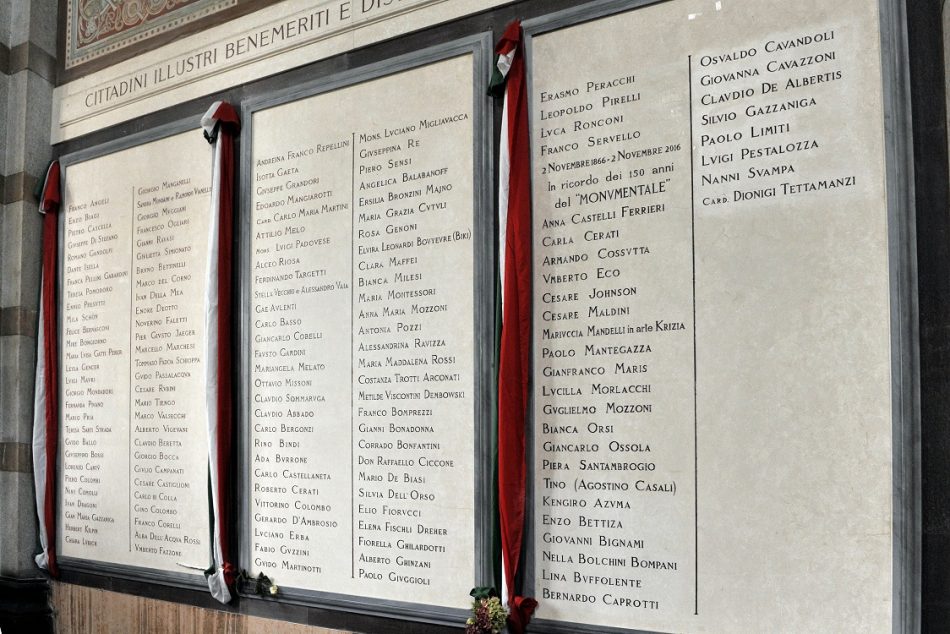 CITTADINI ILLUSTRI BENEMERITI E
FRANCO ANGELI
ENZO BIAGI
PIETRO CASCELLA
GIUSEPPE DI STEFANO
ROMANO GANDOLFI
DANTE ISELLA
FRANCA PILLINI GARANDINI
TERESA POMODORO
ENNIO PRESUTTI
MILA SCHÖN
FELICE BERNASCONI
MIKE BONGIORNO
MARIA LUISA GATTI PERER
LEYLA GENCER
LUIGI MAURI
GIORGIO MONDADORI
FERNANDA PIVANO
MARCO PRIA
TERESA SARTI STRADA
GUIDO BALLO
GIUSEPPE BOSSI
LORENZO CARÙ
PIERO COLOMBI
NINÌ COMOLLI
IVAN DRAGONI
GIAN MARIA GAZZANIGA
HERBERT KILPIN
CHIARA LUBICH
GIORGIO MANGANELLI
SANDRA MONDAINI E RAIMONDO VIANELLO
GIORGIO MUGGIANI
FRANCESCO OGLIARI
GIANNI RAVASI
GIULIETTA SIMIONATO
BRUNO BETTINELLI
MARCO DEL CORNO
IVAN DELLA MEA
ENORE DEOTTO
NOVERINO FALETTI
PIER GIUSTO JAEGER
MARCELLO MARCHESI
TOMMASO PADOA SCHIOPPA
GUIDO PASSALACQUA
CESARE RUBINI
MARIO TIENGO
MARCO VALSECCHI
ALBERTO VIGEVANI
CLAUDIO BERETTA
GIORGIO BOCCA
GIULIO CAMPANATI
CESARE CASTIGLIONI
CARLO DE COLLA
GINO COLOMBO
FRANCO CORELLI
ALBA DELL'ACQUA ROSSI
VMBERTO FAZZONE
ANDREINA FRANCO REPELLINI
ISOTTA GAETA
GIVSEPPE GRANDORI
EDOARDO MANGIAROTTI
CARD. CARLO MARIA MARTINI
ATTILIO MELO
MONS. LVIGI PADOVESE
ALCEO RIOSA
FERDINANDO TARGETTI
STELLA VECCHIO E ALESSANDRO VAIA
GAE AVLENTI
CARLO BASSO
GIANCARLO COBELLI
FAVSTO GARDINI
MARIANGELA MELATO
OTTAVIO MISSONI
CLAUDIO SOMMARVGA
CLAVDIO ABBADO
CARLO BERGONZI
RINO BINDI
ADA BVRRONE
CARLO CASTELLANETA
ROBERTO CERATI
VITTORINO COLOMBO
GERARDO D'AMBROSIO
LVCIANO ERBA
FABIO GVZZINI
GVIDO MARTINOTTI
MONS. LVCIANO MIGLIAVACCA
GIVSEPPINA RE
PIERO SENSI
ANGELICA BALABANOFF
ERSILIA BRONZINI MAJNO
MARIA GRAZIA CVTVLI
ROSA GENONI
ELVIRA LEONARDI BOVYEVRE (BIKI)
CLARA MAFFEI
BIANCA MILESI
MARIA MONTESSORI
ANNA MARIA MOZZONI
ANTONIA POZZI
ALESSANDRINA RAVIZZA
MARIA MADDALENA ROSSI
COSTANZA TROTTI ARCONATI
METILDE VISCONTINI DEMBOWSKI
FRANCO BOMPREZZI
GIANNI BONADONNA
CORRADO BONFANTINI
DON RAFFAELLO CICCONE
MARIO DE BIASI
SILVIA DELL'ORSO
ELIO FIORVCCI
ELENA FISCHLI DREHER
FIORELLA GHILARDOTTI
ALBERTO GRINZANI
PAOLO GIVGGIOLI
ERASMO PERACCHI
LEOPOLDO PIRELLI
LVCA RONCONI
FRANCO SERVELLO
2 NOVEMBRE 1866 - 2 NOVEMBRE 2016
In ricordo dei 150 anni
del "MONVMENTALE"
ANNA CASTELLI FERRIERI
CARLA CERATI
ARMANDO COSSVTTA
VMBERTO ECO
CESARE JOHNSON
CESARE MALDINI
MARIVCCIA MANDELLI in arte KRIZIA
PAOLO MANTEGAZZA
GIANFRANCO MARIS
LVCILLA MORLACCHI
GVGLIELMO MOZZONI
BIANCA ORSI
GIANCARLO OSSOLA
PIERA SANTAMBROGIO
TINO (AGOSTINO CASALI)
KENGIRO AZVMA
ENZO BETTIZA
GIOVANNI BIGNAMI
NELLA BOLCHINI BOMPANI
LINA BVFFOLENTE
BERNARDO CAPROTTI
OSVALDO CAVANDOLI
GIOVANNA CAVAZZONI
CLAVDIO DE ALBERTIS
SILVIO GAZZANIGA
PAOLO LIMITI
LVIGI PESTALOZZA
NANNI SVAMPA
CARD. DIONIGI TETTAMANZI